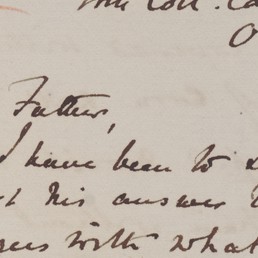 Coll. Ca
O
Father,
I have been to
his answer
with what